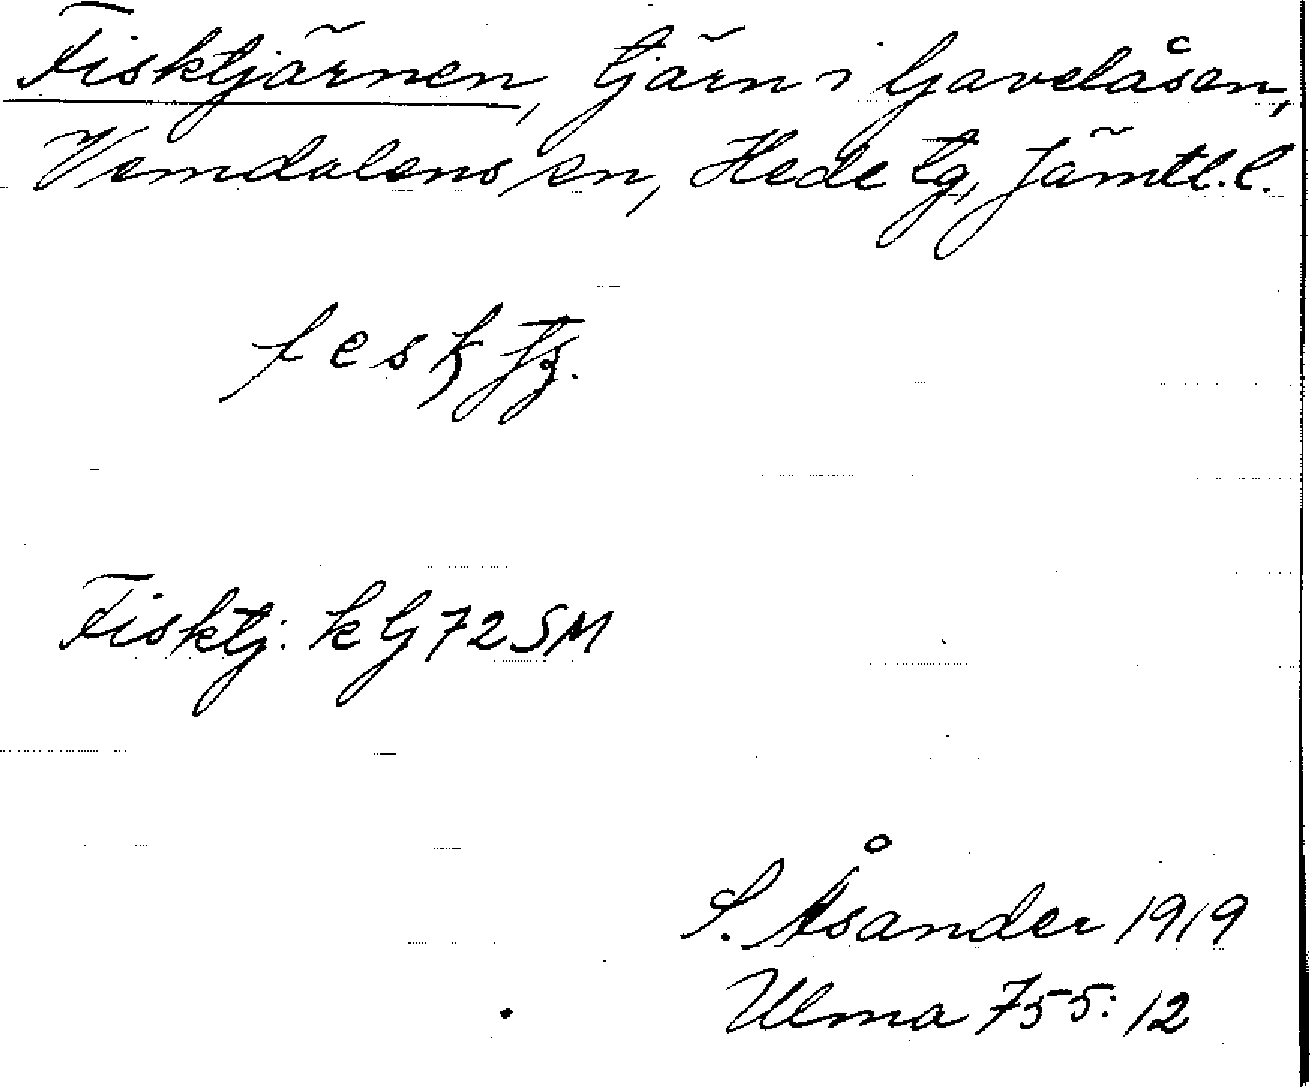 Fisktjärnen, tjärn i Gavelåsen,
Vemdalens sn, Hede tg, Jämtl.l.
feskt
Fisktj. k G 72 SM
S. Åsander 1919
Ulma 755:12